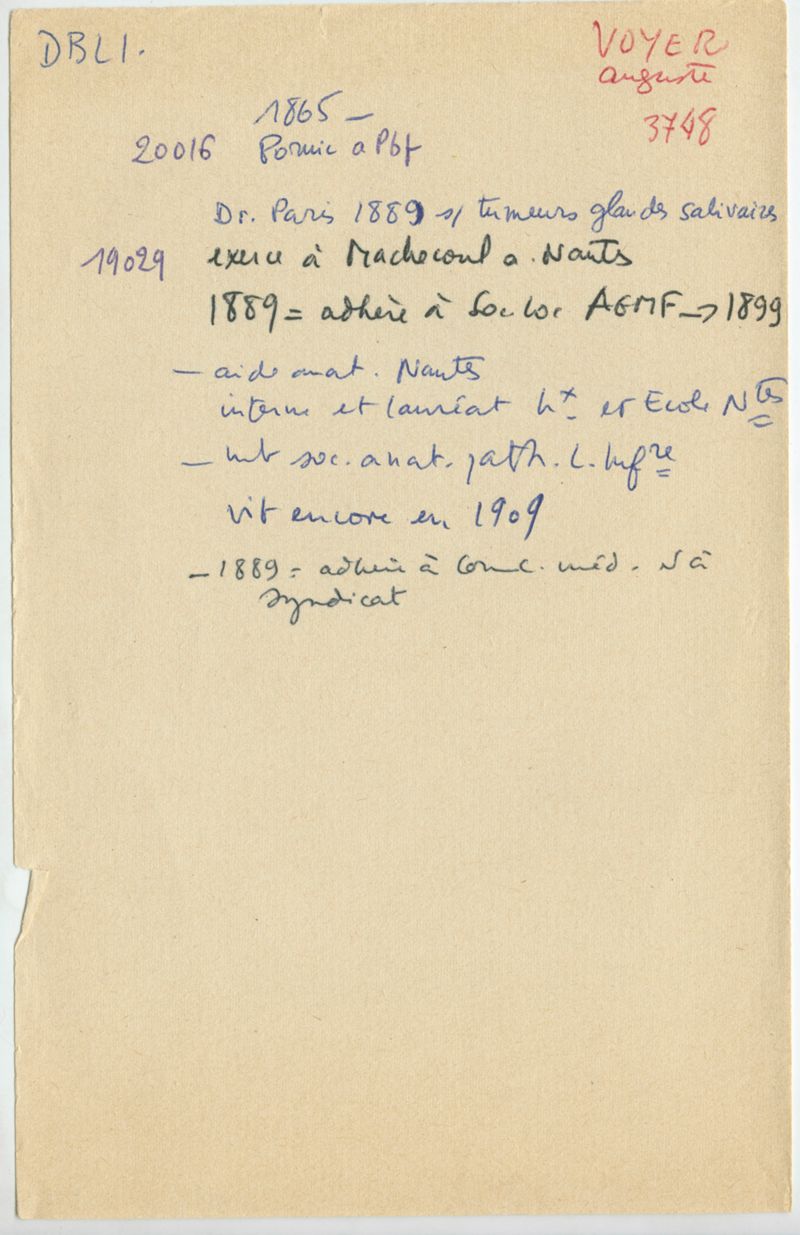 DBLI.
VOYER
auguste
3748
1865 –
20016 Pornic a Pbf
Dr. Paris 1889 s/ tumeurs glandes salivaires
19029 exerce à Machecoul a. Nantes
1889 = adhère à Soc loc AGMF → 1899
– aide anat. Nantes
interne et lauréat hx et Ecole Ntes
– mb soc. anat. path. L. Infre
vit encore en 1909
– 1889 = adhère à méd.
syndicat